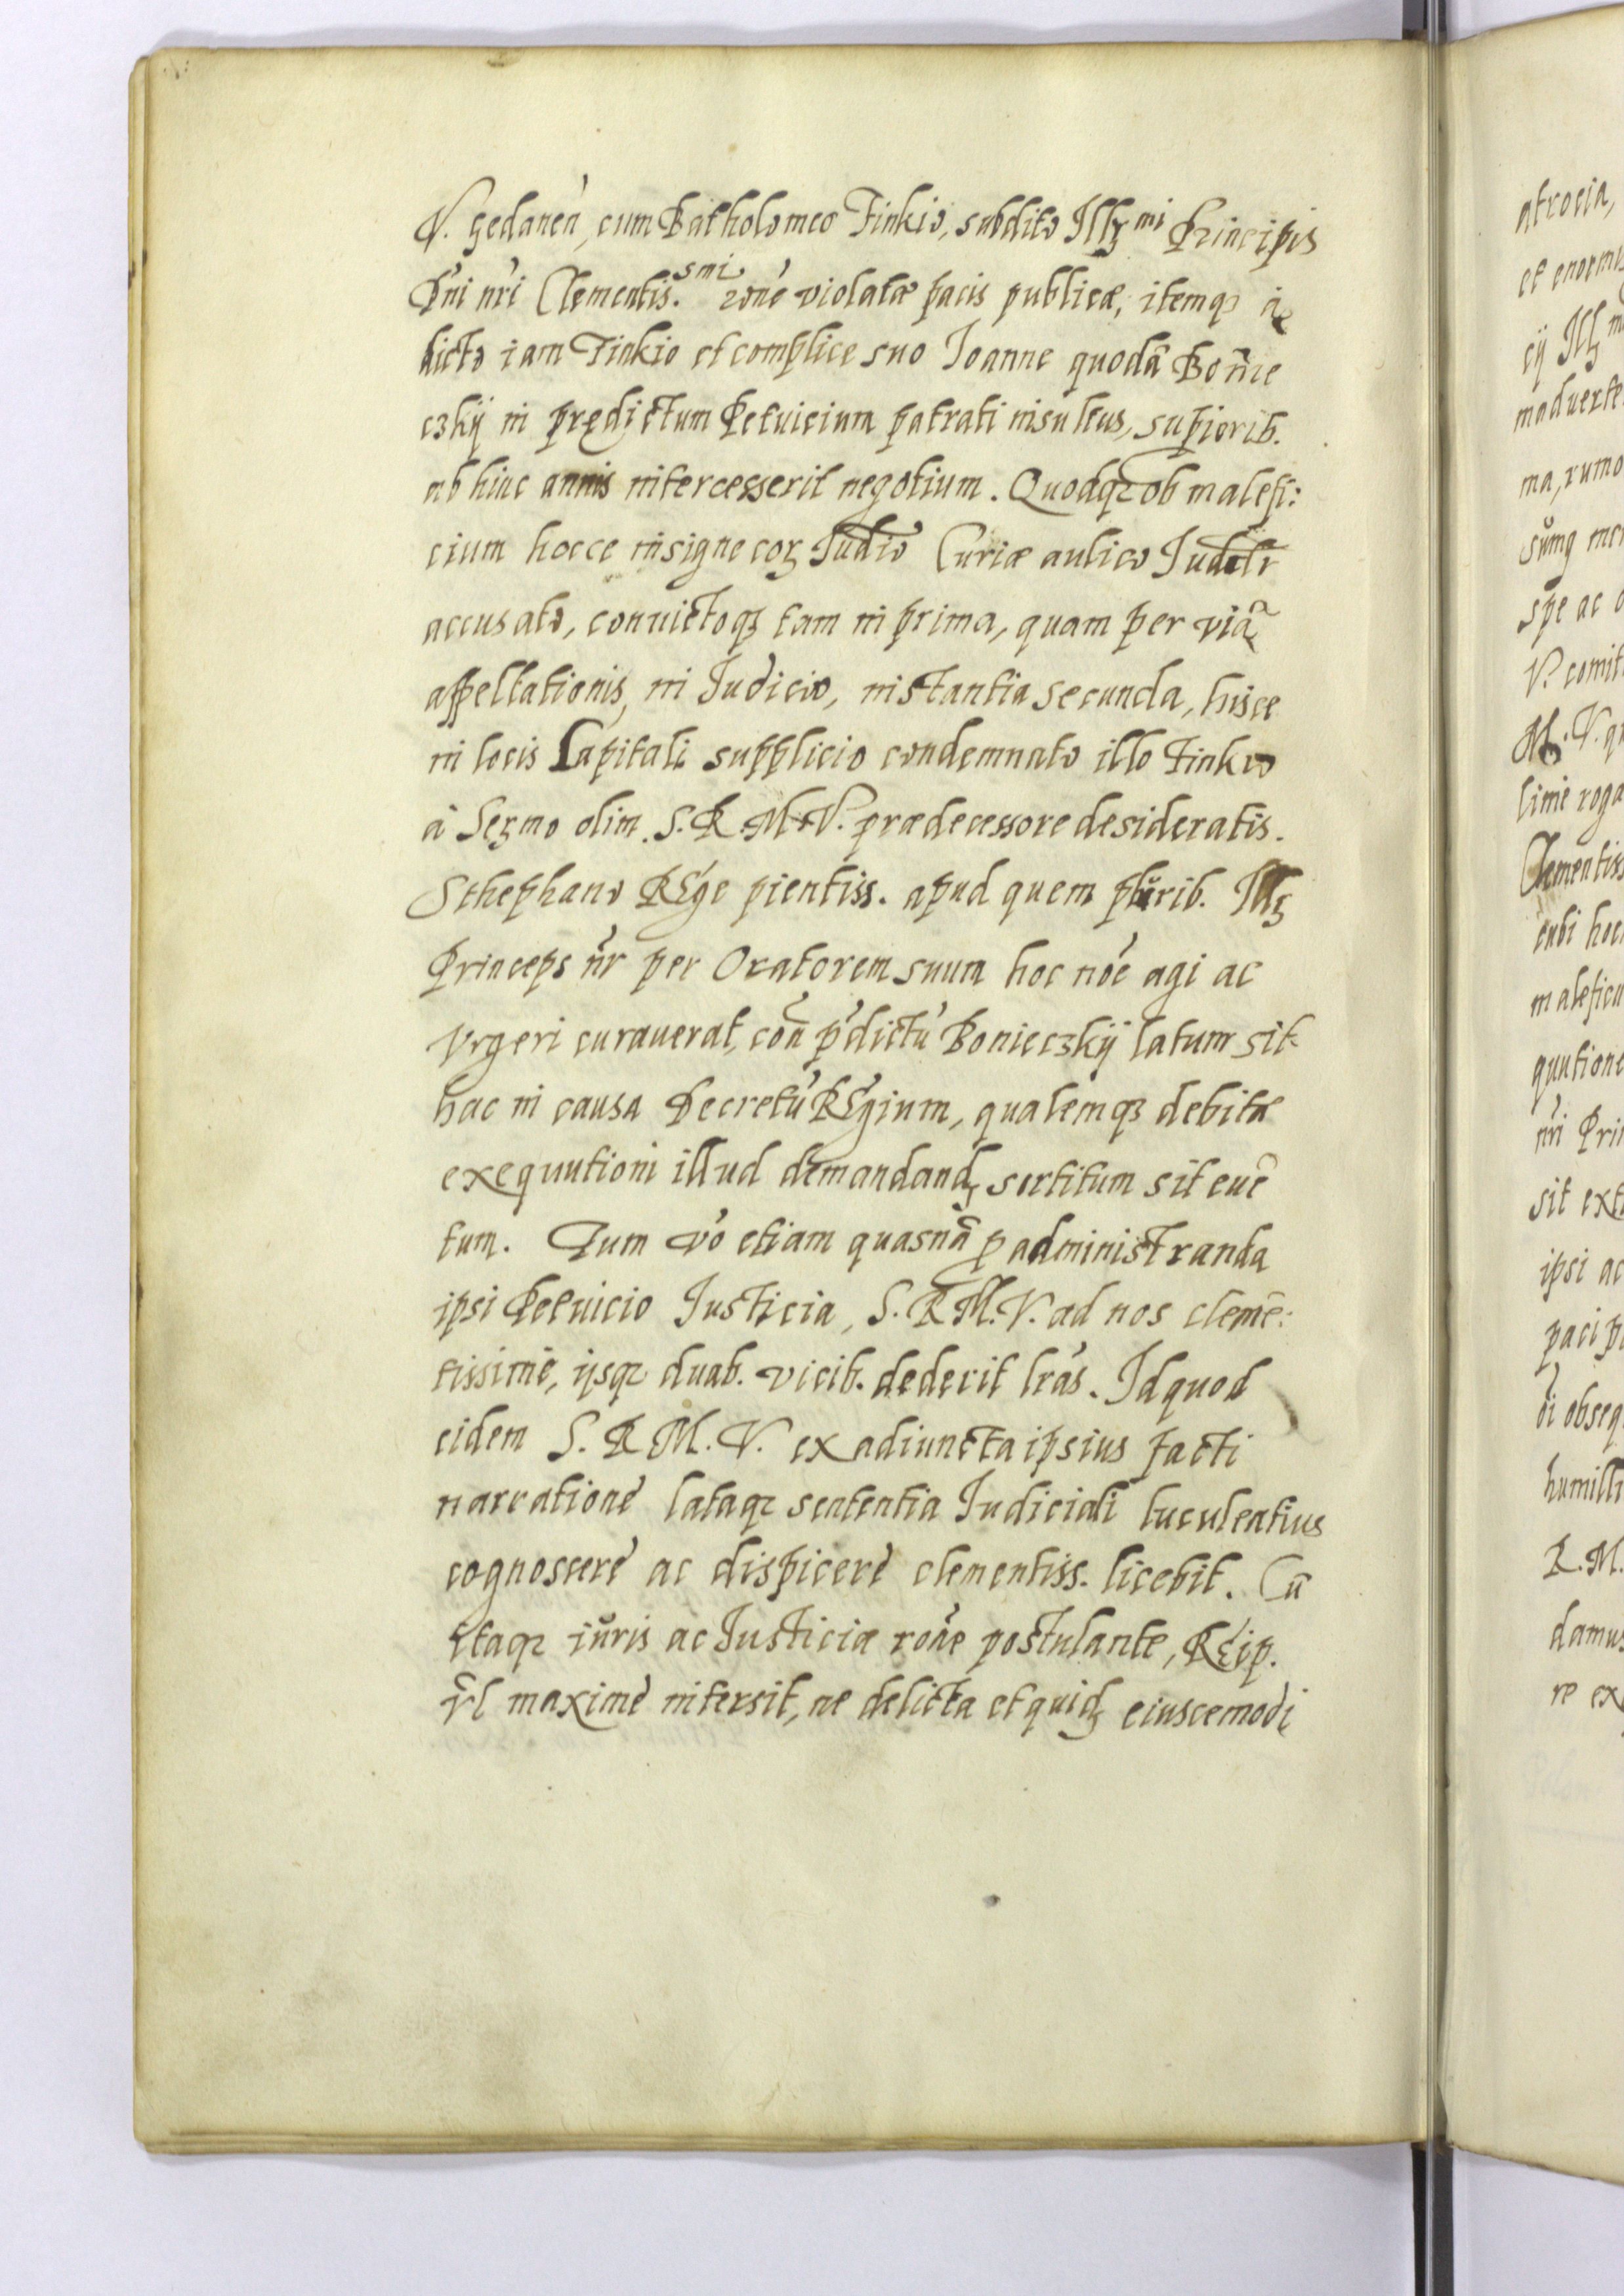 V. Gedanen̄, cum Batholomeo Finkio, subdito Illꝫmi Principis
Dn̄i nr̄i Clementis.smi roūe violatæ pacis publicæ, itemqꝫ à
dicto iam Finkio et complice suo Ioanne quodā Bonie
czkÿ in prędictum Petuicium patrati insultus, supiorib.
ab hinc annis intercesserit negotium. Quodqꝫ ob malefi:
cium hocce insigne corꝫ Iudio Curiæ aulico
accusato, conuictoqꝫ tam in prima, quam per viā
appellationis, in Iudicio, instantia secunda, hisce
in locis Capitali supplicio condemnato illo Finkio
à Serꝫmo olim S. R. M. V. prædecessore desideratis.
Sthephano Rege pientiss. apud quem plŭrib. Illꝫ
Princeps nr̄ per Oratorem suum hoc nōe agi ac
Vrgeri curauerat, con̄ p̄dictū Bonieczkÿ latum sit
hac in causa Decretū Regium, qualemqꝫ debitæ
exequutioni illud demandandꝫ sortitum sit euē
tum. Tum vō etiam quasnā ꝓ administranda
ipsi Petuicio Iusticia, S. R. M. V. ad nos clemē:
tissimè, ijsqꝫ duab. vicib. dederit lrās. Id quod
eidem S. R. M. V. ex adiuncta ipsius facti
narrationè lataqꝫ sententia Iudiciali luculentius
cognoscerè ac dispicerè clementiss. licebit. Cū
itaqꝫ iŭris ac Iusticiæ rōne postulante, Reip.
vl̄ maximè intersit, ne delicta et quidꝫ eiuscemodi
atrocia,
et enormi
cÿ Illꝫ m
maduerte
ma, rumo
sŭmq mer
spe ac
V. comit
M. V. q
limè roga
Clementiss
cubi hoc
maleficu
quutione
nr̄i Prin
sit ext
ipsi ac
paci p
di obseq
humilli
R. M.
damus
re ex